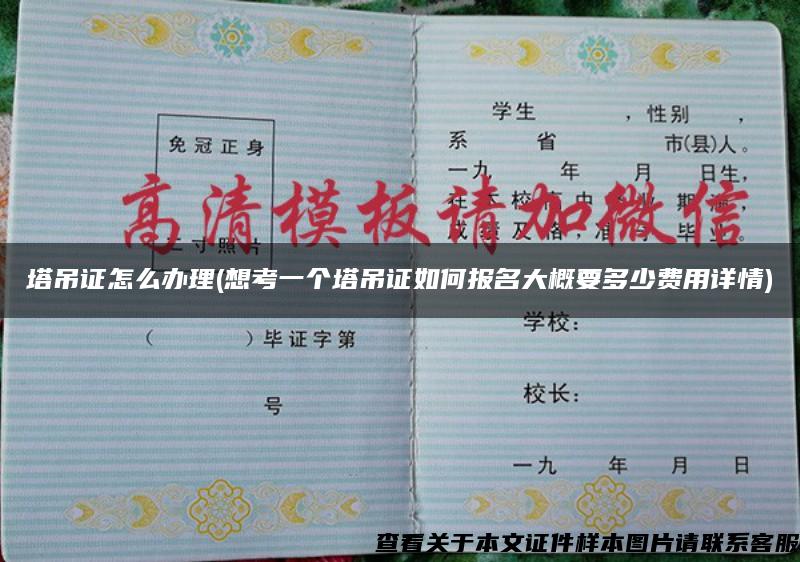 免冠正身
二寸照片
( )毕证字第
号
学生 ，性别 ，
系 省 市(县)人。
一九 年 月 日生，
在 校 中 业 期满，
成绩及格，准予毕业。
学校：
校长：
一九 年 月 日
高清模板请加微信
塔吊证怎么办理(想考一个塔吊证如何报名大概要多少费用详情)
查看关于本文证件样本图片请联系客服